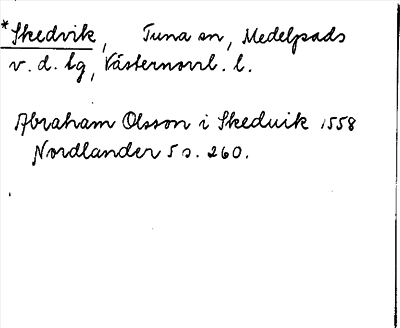 *Skedvik, Tuna sn, Medelpads
v. d. tg, Västernorrl. l.
Abraham Olsson i Skeduik 1558
Nordlander 5 s. 260.